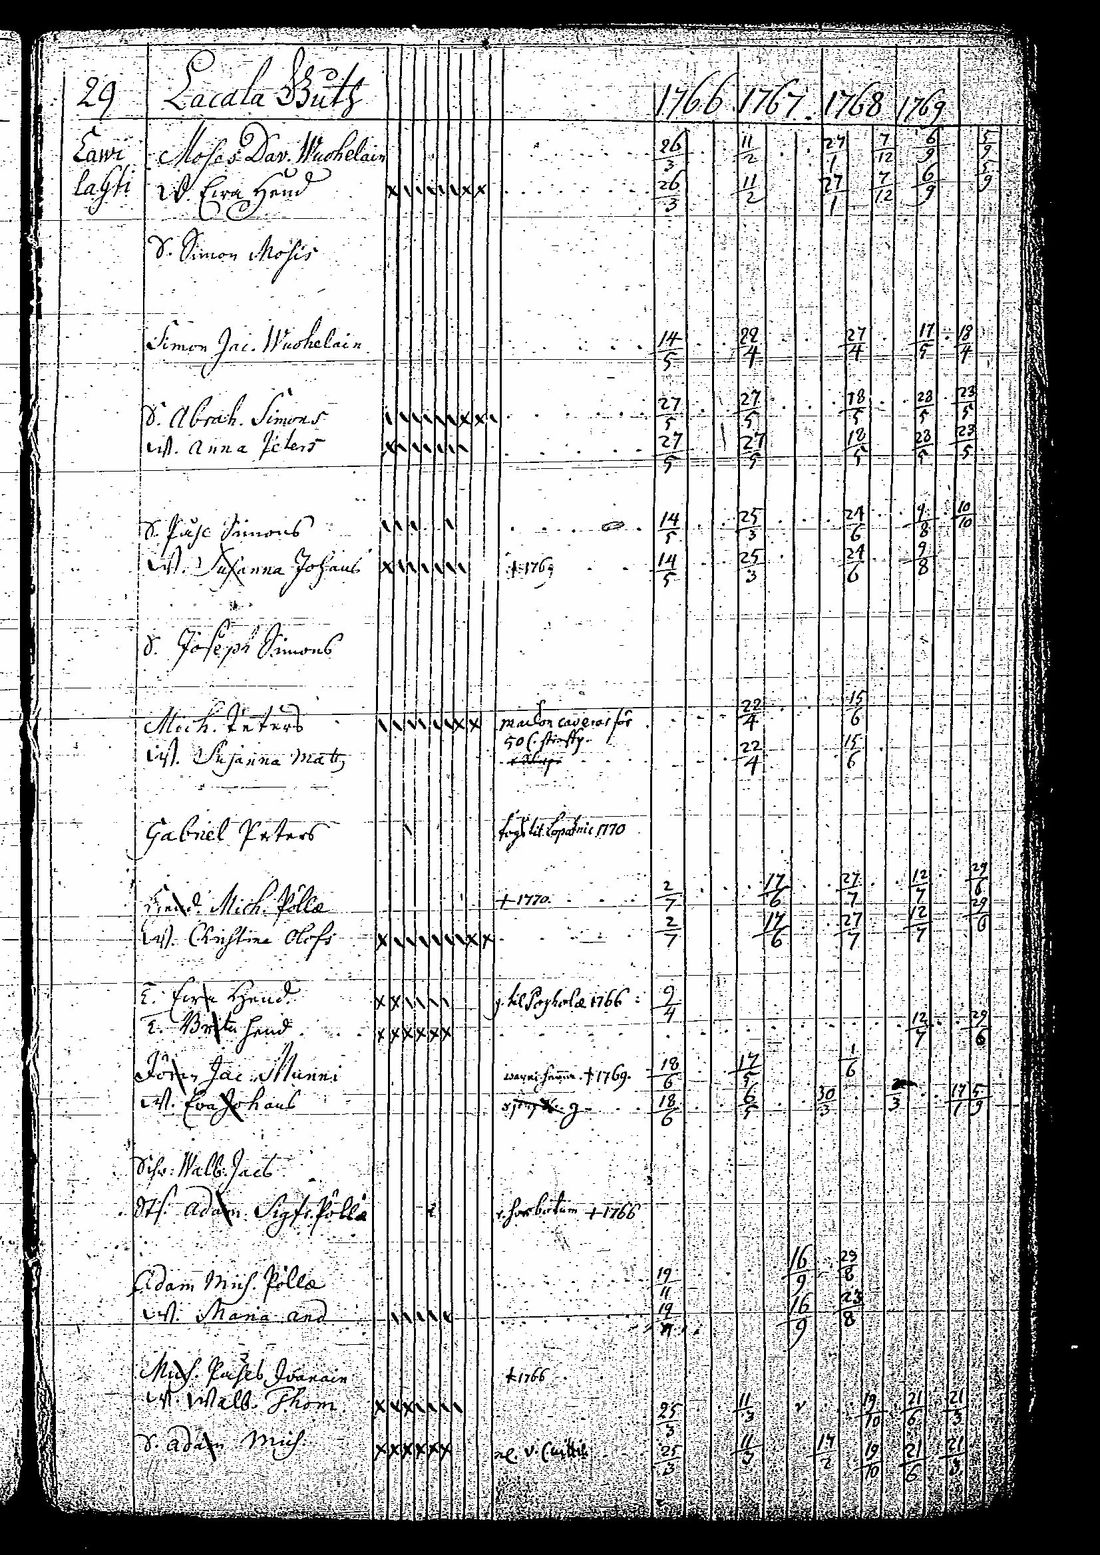 29 Lacala Buth 1766 1767. 1768 1769
Lawi Moses Dav. Wuohelain 26/3 11/2 27/1 7/12 6/9 5/9
lahti W. Eva Hend 26/3 11/2 27/1 7/12 6/9 5/9
S. Simon Mosis
Simon Jac. Wuohelain 14/5 22/4 27/4 17/5 18/4
S. Abrah. Simons 27/5 27/5 18/5 28/5 23/5
W. Anna Peters 27/5 27/5 18/5 28/5 23/5
S. Påhl Simons 14/5 25/3 24/6 9/8 10/10
W. Susanna Johans †1769 14/5 25/3 24/6 9/8
S. Joseph Simons
Mich. Peters 22/4 15/6
50
W. Susanna Matts 22/4 15/6
Gabriel Peters 1770
Hend. Mich. Pöllä †1770. 2/7 17/6 27/7 12/7 29/6
W. Christina Olofs 2/7 17/6 27/7 12/7 29/6
E. Eva Hend. 1766 9/4
E. Brita Hend. 12/7 29/6
Jöran Jac. Munni †1769. 18/6 17/5 1/6
W. Eva Johans 18/6 6/5 30/3 17/1 5/9
Walb. Jacs
Adam Sigfr. Pöllä †1766
Adam Mich. Pöllä 19/11 16/9 29/8
W. Maria And 19/11 16/9 23/8
Mich. Påhls Ivanain †1766
W. Walb. Thom 25/3 11/3 19/10 21/6 21/3
S. Adam Mich. 25/3 11/3 17/2 19/10 21/6 21/3